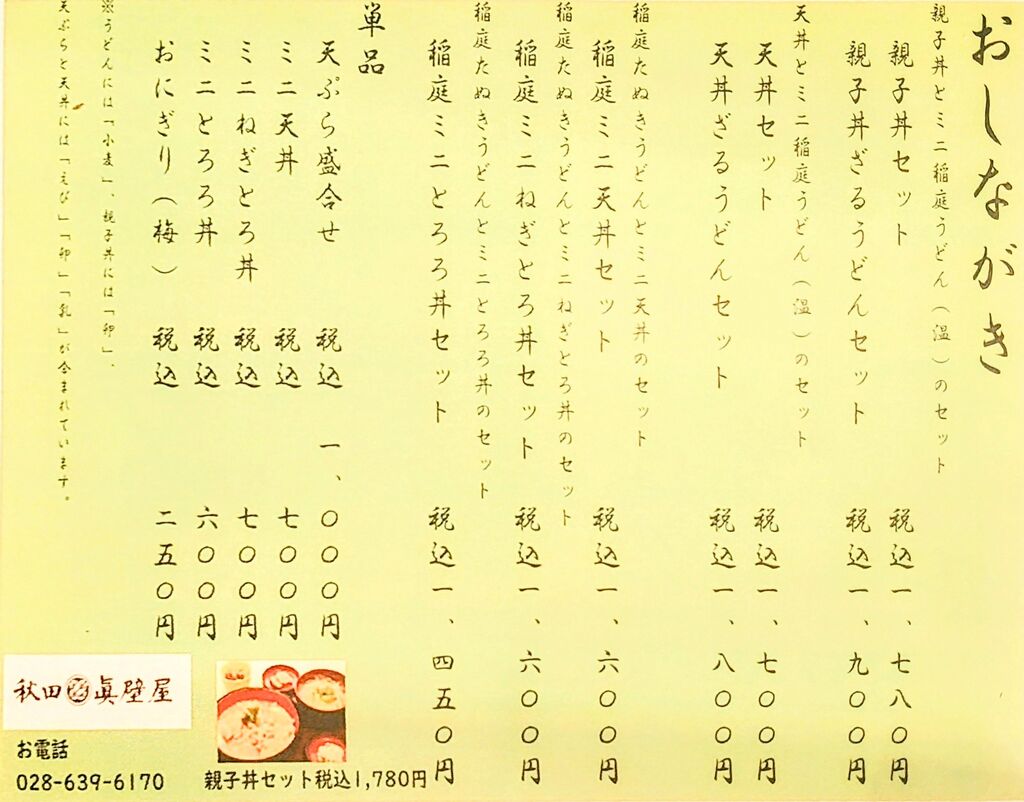 おしながき
親子丼とミニ稲庭うどん(温)のセット
親子丼セット 税込一、七八〇円
親子丼ざるうどんセット 税込一、九〇〇円
天丼とミニ稲庭うどん(温)のセット
天丼セット 税込一、七〇〇円
天丼ざるうどんセット 税込一、八〇〇円
稲庭たぬきうどんとミニ天丼のセット
稲庭ミニ天丼セット 税込一、六〇〇円
稲庭たぬきうどんとミニねぎとろ丼のセット
稲庭ミニねぎとろ丼セット 税込一、六〇〇円
稲庭たぬきうどんとミニとろろ丼のセット
稲庭ミニとろろ丼セット 税込一、四五〇円
単品
天ぷら盛合せ 税込 一、〇〇〇円
ミニ天丼 税込 七〇〇円
ミニねぎとろ丼 税込 七〇〇円
ミニとろろ丼 税込 六〇〇円
おにぎり(梅) 税込 二五〇円
※うどんには「小麦」、親子丼には「卵」、
天ぷらと天丼には「えび」「卵」「乳」が含まれています。
秋田眞壁屋
お電話
028-639-6170
親子丼セット税込1,780円